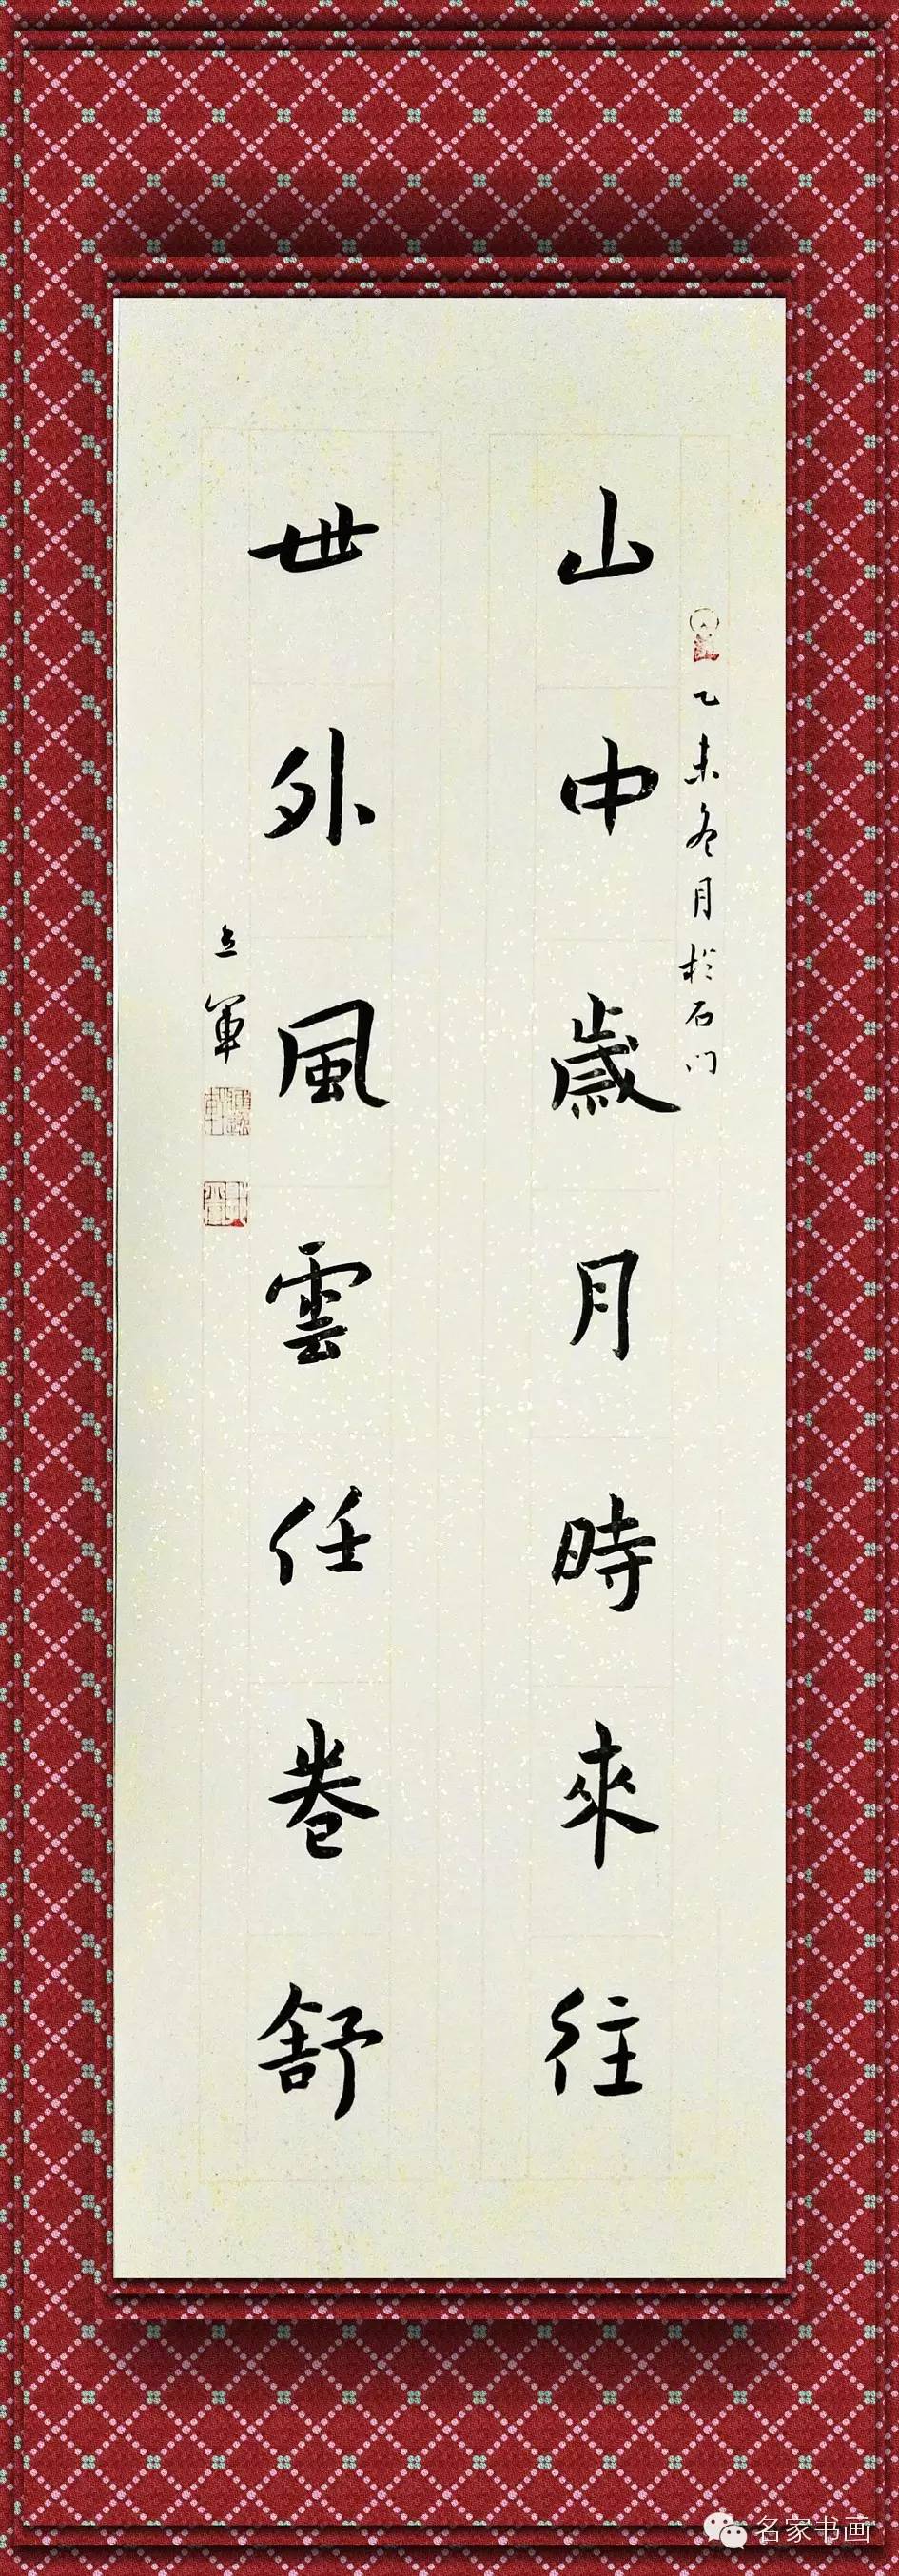 乙未冬月於石门
山中歲月時來往
世外風雲任卷舒
立軍
名家书画